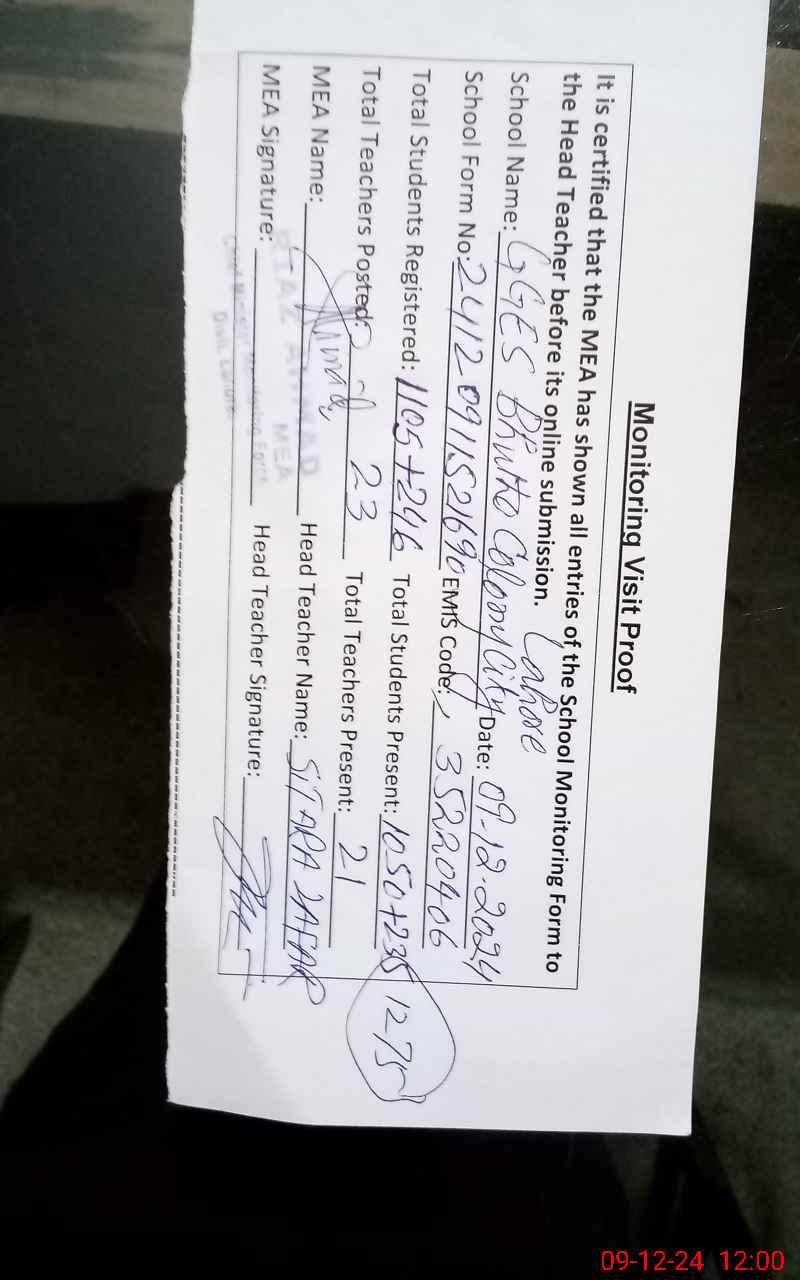 Monitoring Visit Proof
It is certified that the MEA has shown all entries of the School Monitoring Form to
the Head Teacher before its online submission.
School Name: GGES Bhutto Colony City Lahore Date: 09-12-2024
School Form No: 24120911521690 EMIS Code: 35220406
Total Students Registered: 1105+246 Total Students Present: 1050+235 1275
Total Teachers Posted: 23 Total Teachers Present: 21
MEA Name: Head Teacher Name: SITARA ZAFAR
RIAZ AHMAD
MEA
MEA Signature: Head Teacher Signature:
Chief Minister Monitoring Force
Distt. Lahore
09-12-24 12:00